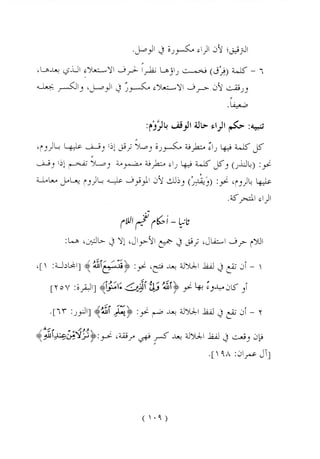 الترقيق؛ لأن الراء مكسورة في الوصل.
٦ - كلمة (فِرْقٍ) فخمت راؤها نظراً لحرف الاستعلاء الذي بعدها،
ورققت لأن حرف الاستعلاء مكسورٌ في الوصل، والكسر يجعله
ضعيفاً.
تنبيه: حكم الراء حالة الوقف بالرَّوْم:
كل كلمة فيها راءٌ متطرفة مكسورة وصلاً ترقق إذا وقف عليها بالروم،
نحو: (بالنذر) وكل كلمة فيها راء متطرفة مضمومة وصلاً تفخم إذا وقف
عليها بالروم، نحو: (ويَقْدِرُ) وذلك لأن الوقوف عليه بالروم يعامل معاملة
الراء المتحركة.
ثانياً - أحكام تفخيم اللام
اللام حرف استفال، ترقق في جميع الأحوال، إلا في حالتين، هما:
١ - أن تقع في لفظ الجلالة بعد فتح، نحو: ﴿قَدْ سَمِعَ اللَّهُ﴾ [المجادلة: ١]،
أو كان مبدوءً بها نحو ﴿اللَّهُ وَلِيُّ الَّذِينَ ءَامَنُوا﴾ [البقرة: ٢٥٧]
٢ - أن تقع في لفظ الجلالة بعد ضم نحو: ﴿يَعْلَمُ اللَّهُ﴾ [النور: ٦٣].
وإن وقعت في لفظ الجلالة بعد كسرٍ فهي مرققة، نحو: ﴿نُزُلًا مِّنْ عِندِ اللَّهِ﴾
[آل عمران: ١٩٨].
(١٠٩)